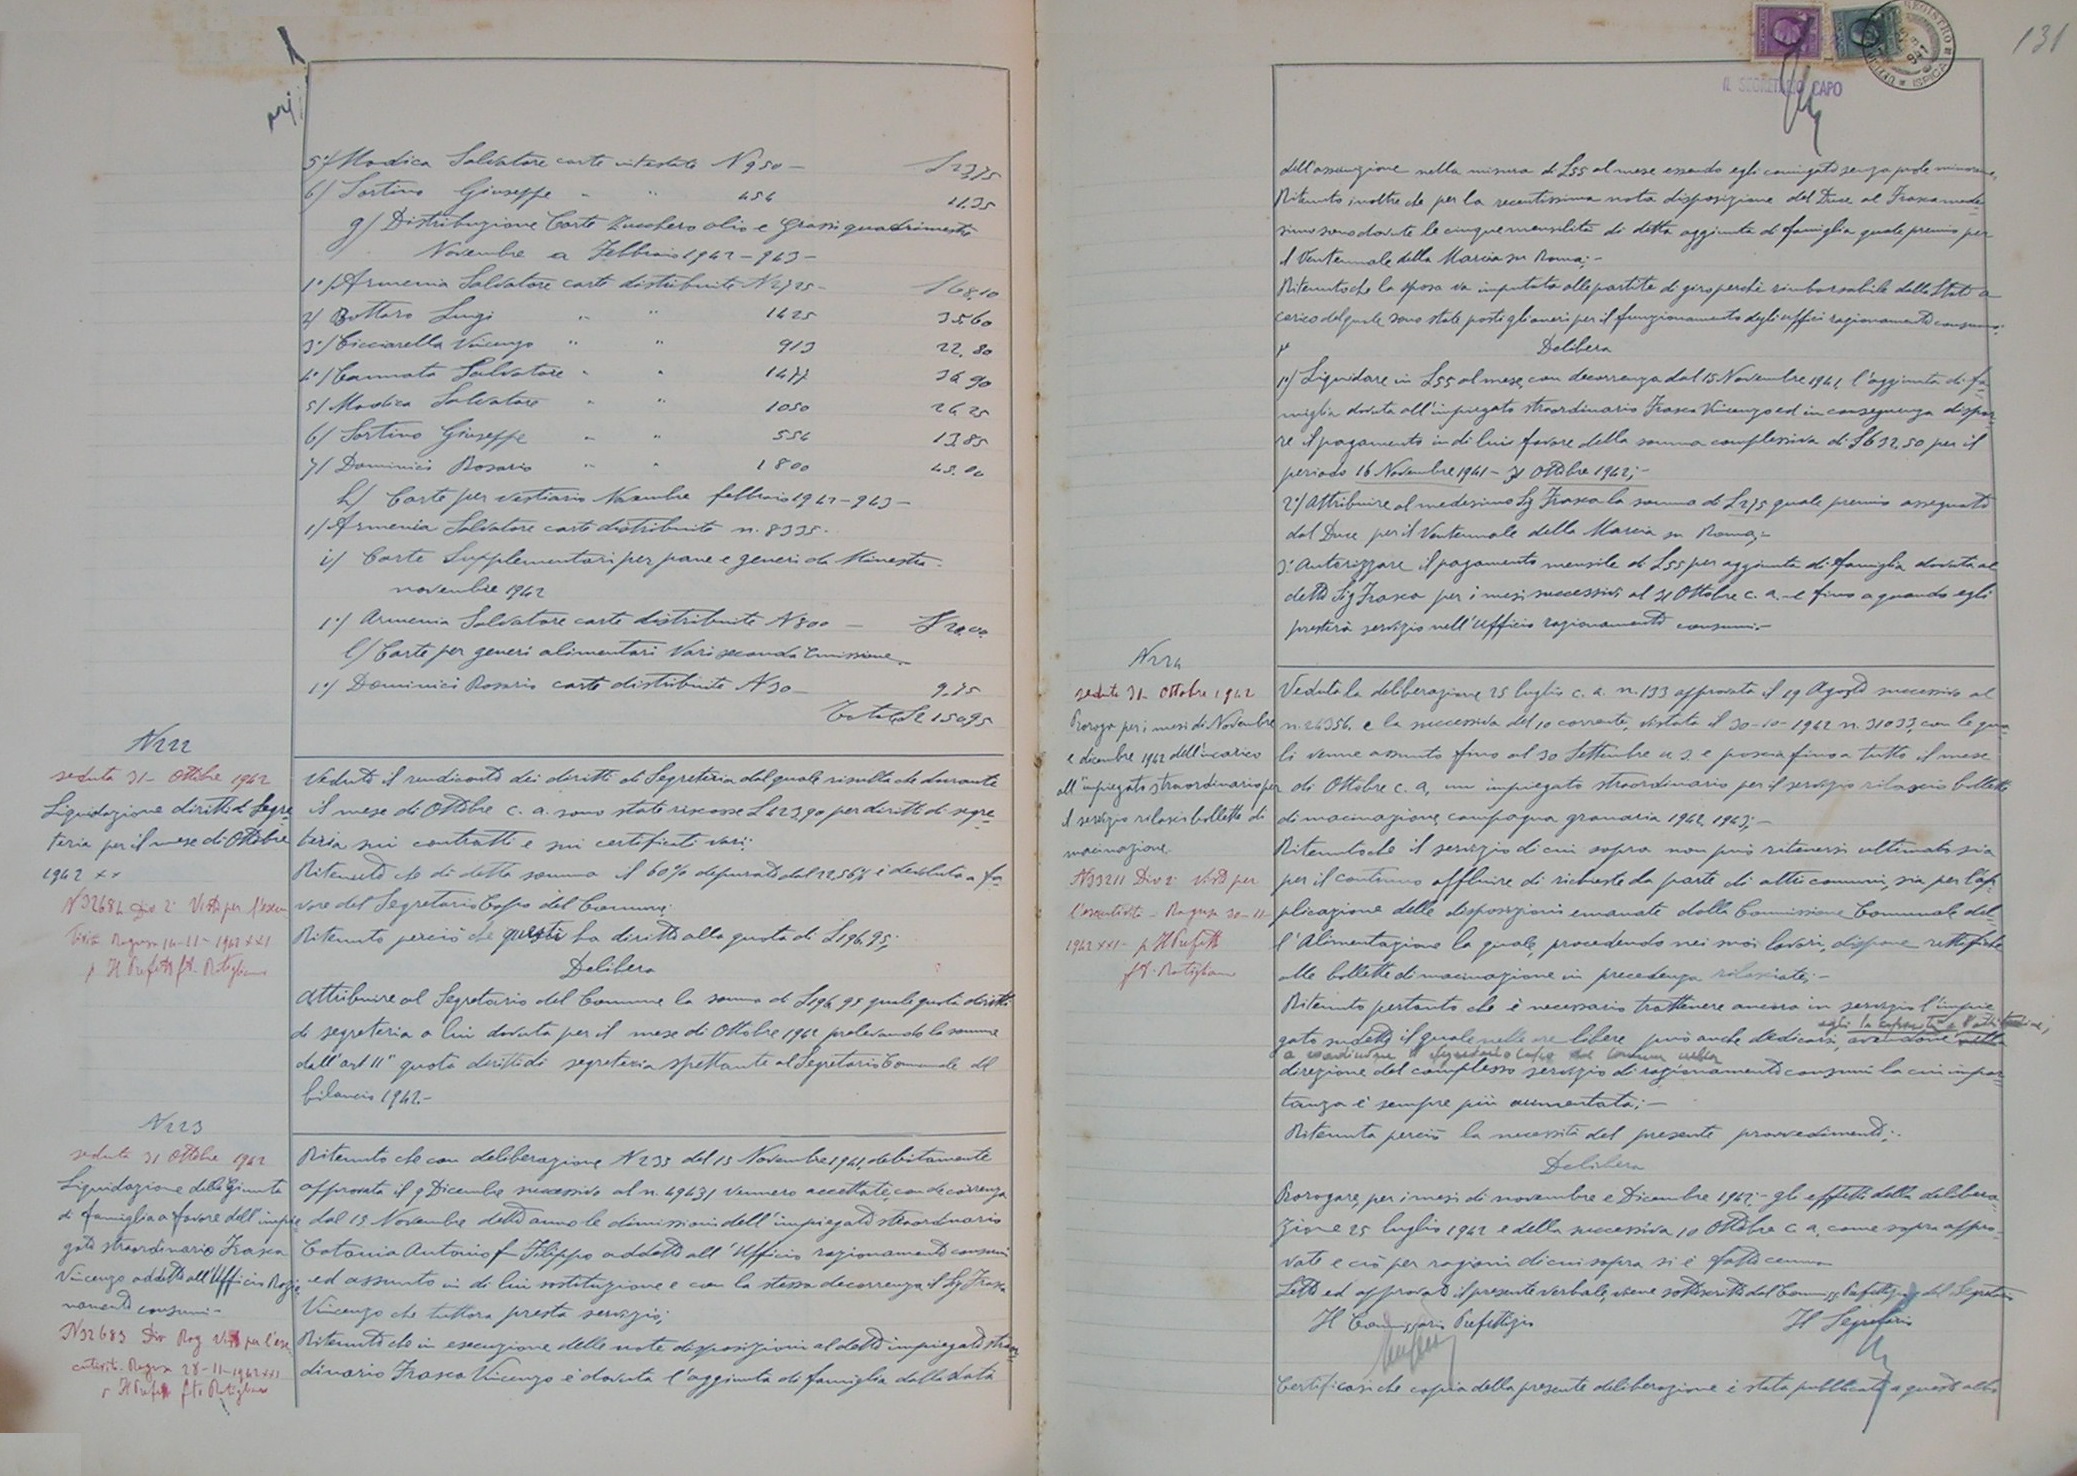 5°/ Modica Salvatore carte intestate N 950 — £ 23,75
6/ Sortino Giuseppe " " 454 11.35
g/ Distribuzione Carte Zucchero olio e Grassi quadrimestre
Novembre a Febbraio 1942-943-
1°/ Armenia Salvatore carte distribuite N 2725- £ 68,10
2/ Bottaro Luigi " " 1425 35,60
3°/ Cicciarella Vincenzo " " 913 22.80
4°/ Cannata Salvatore " " 1477 36.90
5/ Modica Salvatore " " 1050 26.25
6/ Sortino Giuseppe " " 554 13,85
7/ Dominici Rosario " " 1800 45.00
h/ Carte per vestiario Novembre febbraio 1942-943-
1/ Armenia Salvatore carte distribuite n. 8335.
i/ Carte Supplementari per pane e generi da Minestra-
novembre 1942
1°/ Armenia Salvatore carte distribuite N 800 — £ 20,00
l/ Carte per generi alimentari Vari seconda Emissione
1°/ Dominici Rosario carte distribuite N 30 — 9.75
Totale £ 1509,95
N 222
seduta 31- Ottobre 1942
Liquidazione diritti di Segre
teria per il mese di Ottobre
1942 XX
N 32684 Div 2ª Visto per l'esecu
tività Ragusa 14-11-1942 XXI
p Il Prefetto
Veduto il rendiconto dei diritti di Segreteria dal quale risulta che durante
il mese di Ottobre c. a. sono state riscosse £ 423,90 per diritti di segre-
teria sui contratti e sui certificati vari;
Ritenuto che di detta somma il 60% depurato del 22,56% è devoluta a fa-
vore del Segretario Capo del Comune;
Ritenuto perciò che questi ha diritto alla quota di £ 196,95;
Delibera
Attribuire al Segretario del Comune la somma di £ 196,95 quale quota diritti
di segreteria a lui dovuta per il mese di Ottobre 1942 prelevando la somma
dall'art 11" quota diritti di segreteria spettante al Segretario Comunale del
bilancio 1942.-
N 223
seduta 31 Ottobre 1942
Liquidazione della Giunta
di famiglia a favore dell'impie
gato straordinario Frasca
Vincenzo addetto all'Ufficio Razio
namento consumi-
N 32683 Div Rag Visto per l'ese
cutività- Ragusa 28-11-1942 XXI
p Il Prefetto
Ritenuto che con deliberazione N 233 del 15 Novembre 1941, debitamente
approvata il 9 Dicembre successivo al n. 49431 vennero accettate, con decorrenza
dal 15 Novembre detto anno le dimissioni dell'impiegato straordinario
Catania Antonino fu Filippo addetto all'Ufficio razionamento consumi
ed assunto in di lui sostituzione e con la stessa decorrenza il Sig Frasca
Vincenzo che tuttora presta servizio;
Ritenuto che in esecuzione delle note disposizioni al detto impiegato straor
dinario Frasca Vincenzo è dovuta l'aggiunta di famiglia dalla data
131
IL SEGRETARIO CAPO
dell'assunzione nella misura di £ 55 al mese essendo egli coniugato senza prole minorenne,
Ritenuto inoltre che per la recentissima nota disposizione del Duce al Frasca mede-
simo sono dovute le cinque mensilità di detta aggiunta di famiglia quale premio per
il Ventennale della Marcia su Roma;-
Ritenuto che la spesa va imputata alle partite di giro perchè rimborsabile dallo Stato a
carico del quale sono state poste gli oneri per il funzionamento degli uffici razionamento consumi;
Delibera
1°/ Liquidare in £ 55 al mese, con decorrenza dal 15 Novembre 1941, l'aggiunta di fa-
miglia dovuta all'impiegato straordinario Frasca Vincenzo ed in conseguenza dispor-
re il pagamento in di lui favore della somma complessiva di £ 632,50 per il
periodo 16 Novembre 1941 - 31 Ottobre 1942;-
2°/ Attribuire al medesimo Sig Frasca la somma di £ 275 quale premio assegnato
dal Duce per il Ventennale della Marcia su Roma;-
3° Autorizzare il pagamento mensile di £ 55 per aggiunta di famiglia dovuta al
detto Sig Frasca per i mesi successivi al 31 Ottobre c. a. e fino a quando egli
presterà servizio nell'Ufficio razionamento consumi.-
N 224
seduta 31- Ottobre 1942
Proroga per i mesi di Novembre
e dicembre 1942 dell'incarico
all'impiegato straordinario per
il servizio rilascio bollette di
macinazione
N 33211 Div 2ª Visto per
l'esecutività - Ragusa 30-11-
1942 XXI- p Il Prefetto
Veduta la deliberazione 25 luglio c. a. n. 133 approvata il 19 Agosto successivo al
n. 24356, e la successiva del 10 corrente, vistata il 30-10-1942 n. 31033, con le qua-
li venne assunto fino al 30 Settembre u. s. e poscia fino a tutto il mese
di Ottobre c. a, un impiegato straordinario per il servizio rilascio bollette
di macinazione campagna granaria 1942, 1943;-
Ritenuto che il servizio di cui sopra non può ritenersi ultimato sia
per il continuo affluire di richieste da parte di altri comuni, sia per l'ap-
plicazione delle disposizioni emanate dalla Commissione Comunale del-
l'Alimentazione la quale, procedendo nei suoi lavori, dispone rettifiche
alle bollette di macinazione in precedenza rilasciate;-
Ritenuto pertanto che è necessario trattenere ancora in servizio l'impie-
gato sudetto il quale nelle ore libere può anche dedicarsi,
direzione del complesso servizio di razionamento consumi la cui impor-
tanza è sempre più aumentata;-
Ritenuta perciò la necessità del presente provvedimento;.
Delibera
Prorogare, per i mesi di novembre e Dicembre 1942- gli effetti della delibera-
zione 25 luglio 1942 e della successiva 10 Ottobre c a, come sopra appro-
vate e ciò per ragioni di cui sopra si è fatto cenno
Letto ed approvato il presente verbale, viene sottoscritto dal Commiss. Prefettizio e dal Segretario
Il Commissario Prefettizio Il Segretario
Certificasi che copia della presente deliberazione è stata pubblicata a questo albo